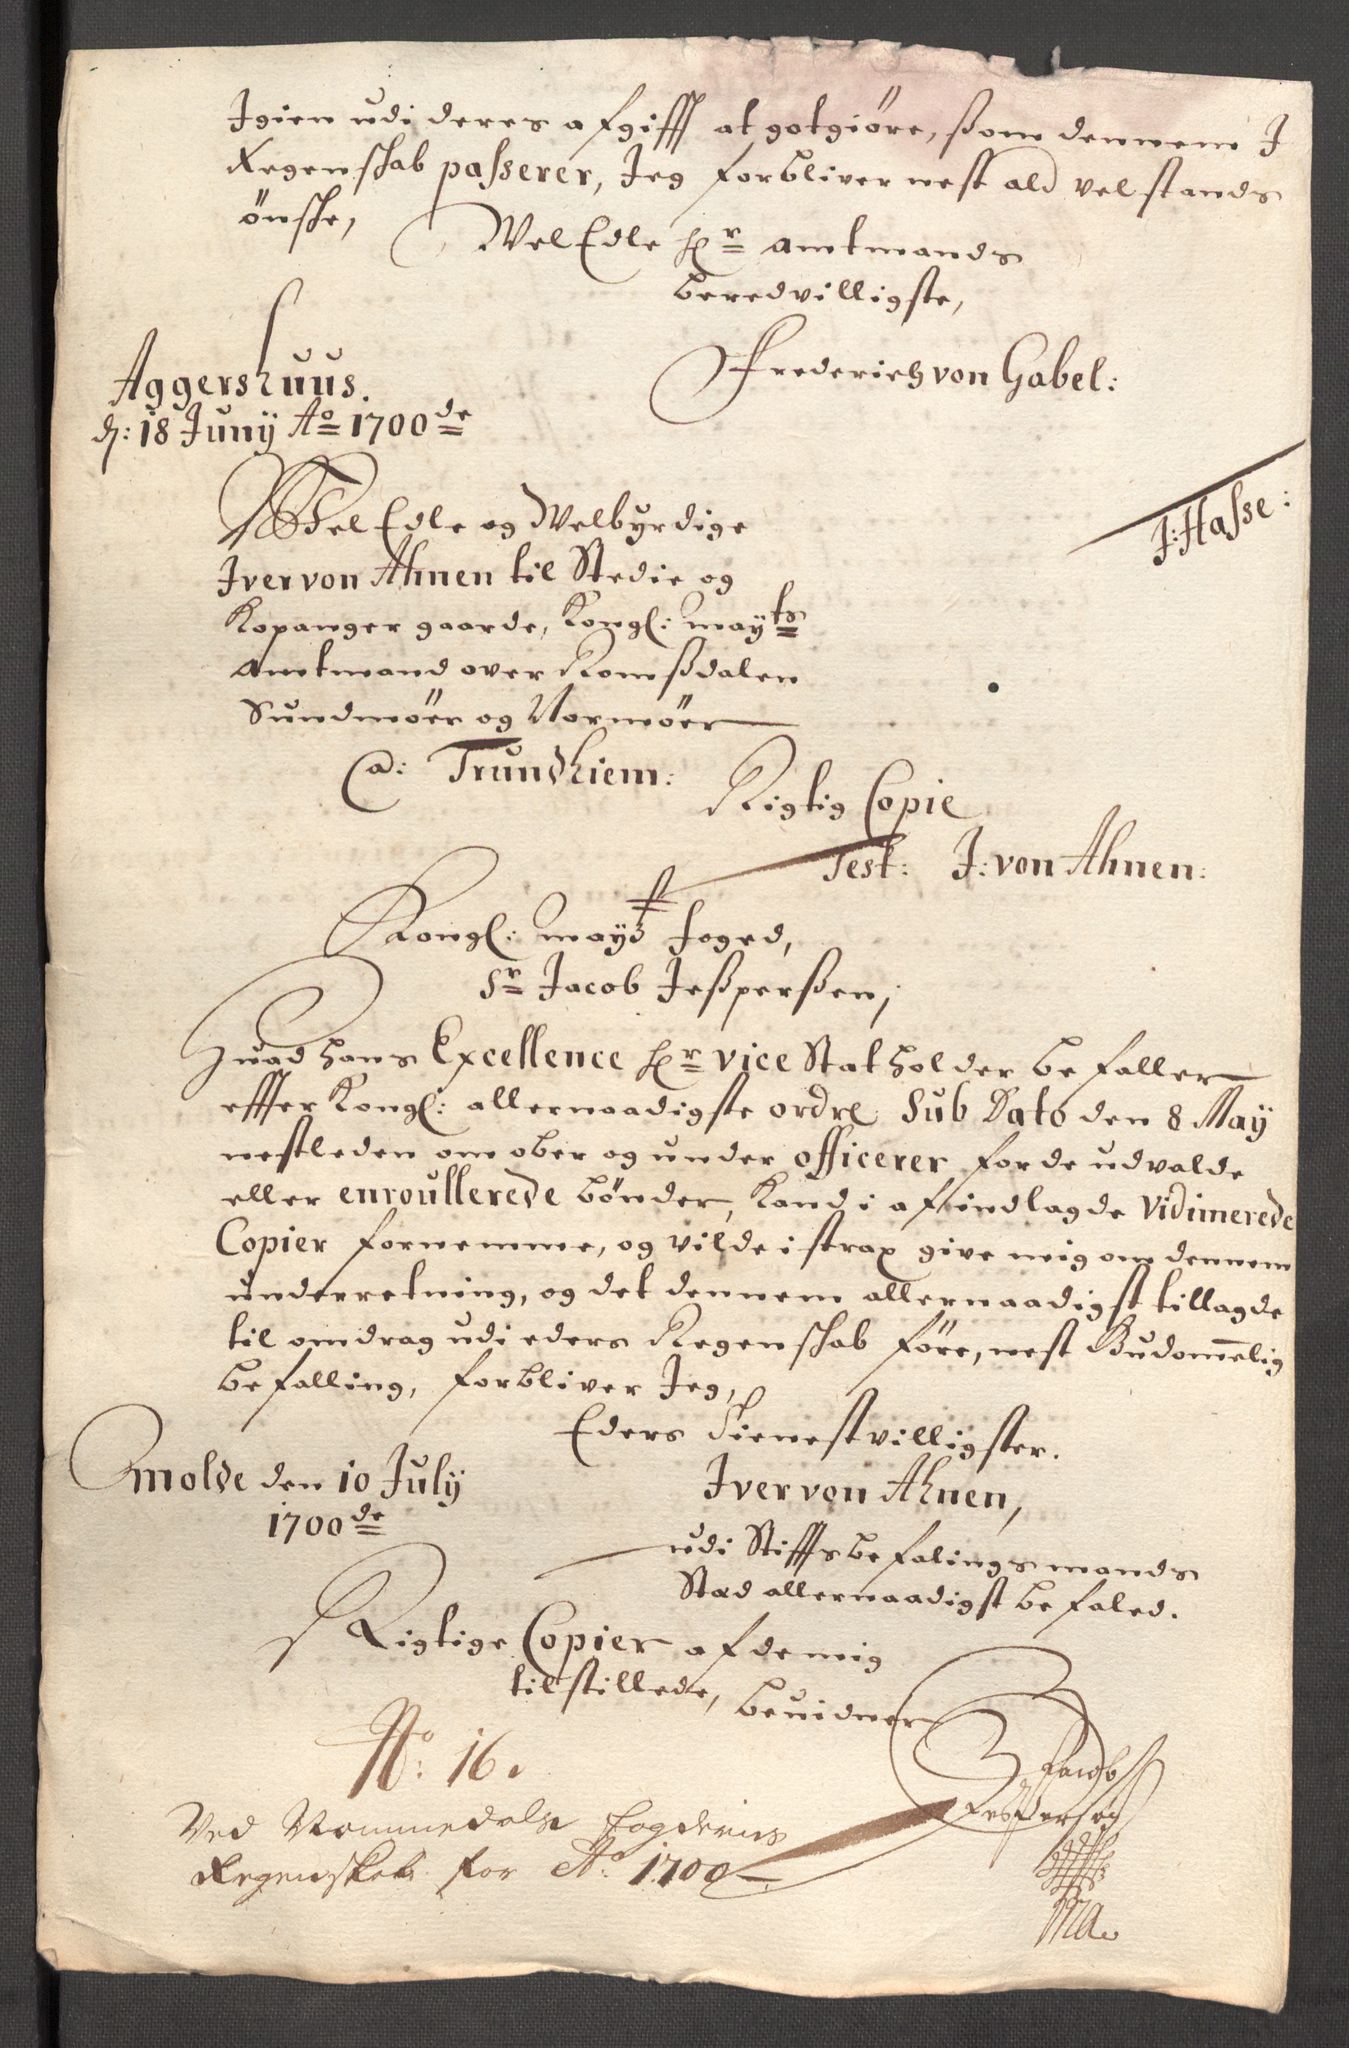 Igien udi deres afgifft at gotgiöre, ßom dennem I
Regenskab passerer, Jeg forbliver nest ald velstands
önske,
WelEdle hr amtmands
beredvilligste,
Frederich von Gabel:
Aggershuus.
d: 18 Juny Ao 1700de
J: Hasse:
Wel Edle og Welbyrdige
Iver von Ahnen til Stedie og
Kopanger gaarde, Kongl: mayts
Amtmand over Romßdalen
Sundmöer og Normöer
a: Trundhiem:
Rigtig Copie
Test: J: von Ahnen:
Kongl: mayts foged,
Sr Jacob Jeßperßen,
Huad hans Excellence hr vice Statholder befaller
effter Kongl: allernaadigste ordre Sub Dato den 8 May
nestleden om ober og under officerer for de udvalde
eller enroullerede bönder, Kand i af indlagde vidimerede
Copier fornemme, og vilde i strax give mig om dennem
underretning, og det dennem allernaadigst tillagde
til omdrag udi eders Regenskab före, nest Gudom̄elig
befalling, forbliver Jeg,
Eders Tienestvilligster.
Molde den 10 July
1700de
Iver von Ahnen,
udi Stifftsbefalingsmands
Stad allernaadigst befaled.
Rigtige Copier af de mig
tilstillede, beuidner
Jacob
Jespersen
No: 16.
Ved Rommedals fogderies
Regenskab for Ao: 1700